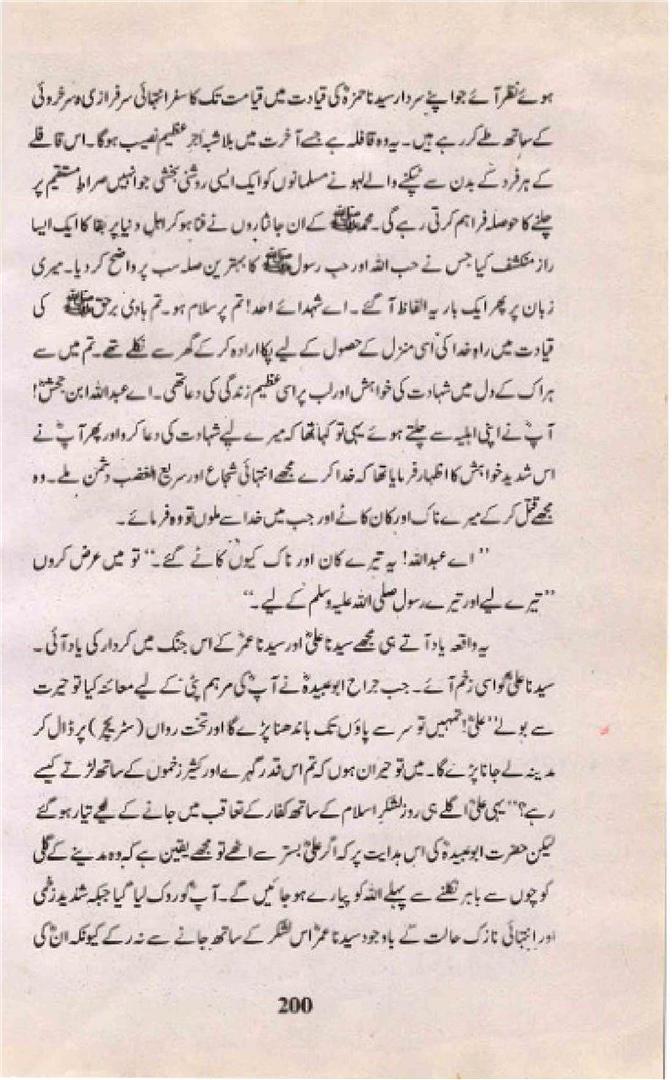 ہوئے نظر آئے جو اپنے سردار سیدنا حمزہؓ کی قیادت میں قیامت تک کا سفر انتہائی سرفرازی و سرخروئی
کے ساتھ طے کر رہے ہیں۔ یہ وہ قافلہ ہے جسے آخرت میں بلاشبہ اجر عظیم نصیب ہوگا۔ اس قافلے
کے ہر فرد کے بدن سے ٹپکنے والے لہو نے مسلمانوں کو ایک ایسی روشنی بخشی جو انہیں صراط مستقیم پر
چلنے کا حوصلہ فراہم کرتی رہے گی۔ محمد ﷺ کے ان جانثاروں نے فنا ہو کر اہل دنیا پر بقا کا ایک ایسا
راز منکشف کیا جس نے حب اللہ اور حب رسول ﷺ کا بہترین صلہ سب پر واضح کر دیا۔ میری
زبان پر پھر ایک بار یہ الفاظ آ گئے۔ اے شہدائے احد! تم پر سلام ہو۔ تم ہادی برحق ﷺ کی
قیادت میں راہ خدا کی اسی منزل کے حصول کے لیے پکا ارادہ کر کے گھر سے نکلے تھے۔ تم میں سے
ہر اک کے دل میں شہادت کی خواہش اور لب پر اسی عظیم زندگی کی دعا تھی۔ اے عبداللہ ابن جحشؓ!
آپؓ نے اپنی اہلیہ سے چلتے ہوئے یہی تو کہا تھا کہ میرے لیے شہادت کی دعا کرو اور پھر آپؓ نے
اس شدید خواہش کا اظہار فرمایا تھا کہ خدا کرے مجھے انتہائی شجاع اور سریع الغضب دشمن ملے۔ وہ
مجھے قتل کر کے میرے ناک اور کان کاٹے اور جب میں خدا سے ملوں تو وہ فرمائے۔
”اے عبداللہ! یہ تیرے کان اور ناک کیوں کاٹے گئے۔“ تو میں عرض کروں
”تیرے لیے اور تیرے رسول صلی اللہ علیہ وسلم کے لیے۔“
یہ واقعہ یاد آتے ہی مجھے سیدنا علیؓ اور سیدنا عمرؓ کے اس جنگ میں کردار کی یاد آئی۔
سیدنا علیؓ کو اسی زخم آئے۔ جب جراح ابوعبیدہؓ نے آپؓ کی مرہم پٹی کے لیے معائنہ کیا تو حیرت
سے بولے ”علیؓ! تمہیں تو سر سے پاؤں تک باندھنا پڑے گا اور تخت رواں (سٹریچر) پر ڈال کر
مدینہ لے جانا پڑے گا۔ میں تو حیران ہوں کہ تم اس قدر گہرے اور کثیر زخموں کے ساتھ لڑتے کیسے
رہے؟“ یہی علیؓ اگلے ہی روز لشکر اسلام کے ساتھ کفار کے تعاقب میں جانے کے لیے تیار ہو گئے
لیکن حضرت ابوعبیدہؓ کی اس ہدایت پر کہ اگر علیؓ بستر سے اٹھے تو مجھے یقین ہے کہ وہ مدینے کے گلی
کوچوں سے باہر نکلنے سے پہلے اللہ کو پیارے ہو جائیں گے۔ آپؓ کو روک لیا گیا جبکہ شدید زخمی
اور انتہائی نازک حالت کے باوجود سیدنا عمرؓ اس لشکر کے ساتھ جانے سے نہ رکے کیونکہ انؓ کی
200